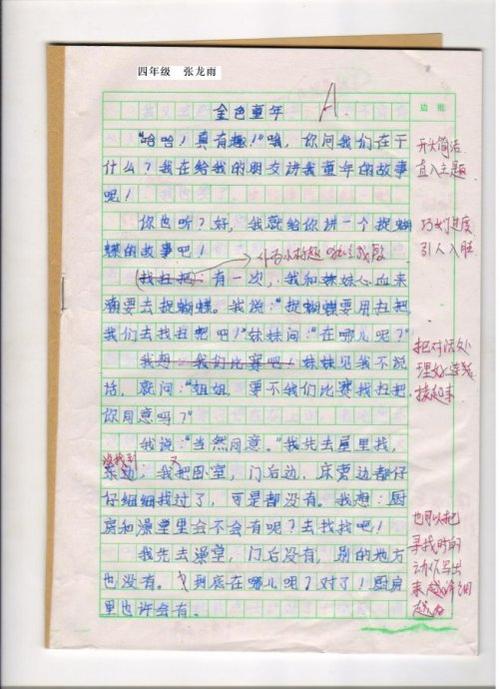 四年级 张龙雨
A.
金色童年
“哈哈！真有趣！”哦，你问我们在干
什么？我在给我的朋友讲我童年的故事
呢！
开头简洁
直入主题
你也听？好，我就给你讲一个捉蝴
蝶的故事吧！
引人入胜
(找扫把) 有一次，我和妹妹心血来
潮要去捉蝴蝶。我说：“捉蝴蝶要用扫把，
我们去找扫把吧！”妹妹问：“在哪儿呢？”
我想：我们比赛吧！妹妹见我不说
话，就问：“姐姐，要不我们比赛找扫把，
你同意吗？”
把对话处
理好连贯
接起来
我说：“当然同意。”我先去屋里找，
没找到 又
我把卧室，门后边，床旁边都仔
仔细细找过了，可是都没有。我想：厨
房和澡堂里会不会有呢？去找找吧！
我先去澡堂，门后没有，别的地方
也没有。到底在哪儿呢？对了！厨房
里也许会有。
也可以把
寻找时的
动作写出
来越详细
越好